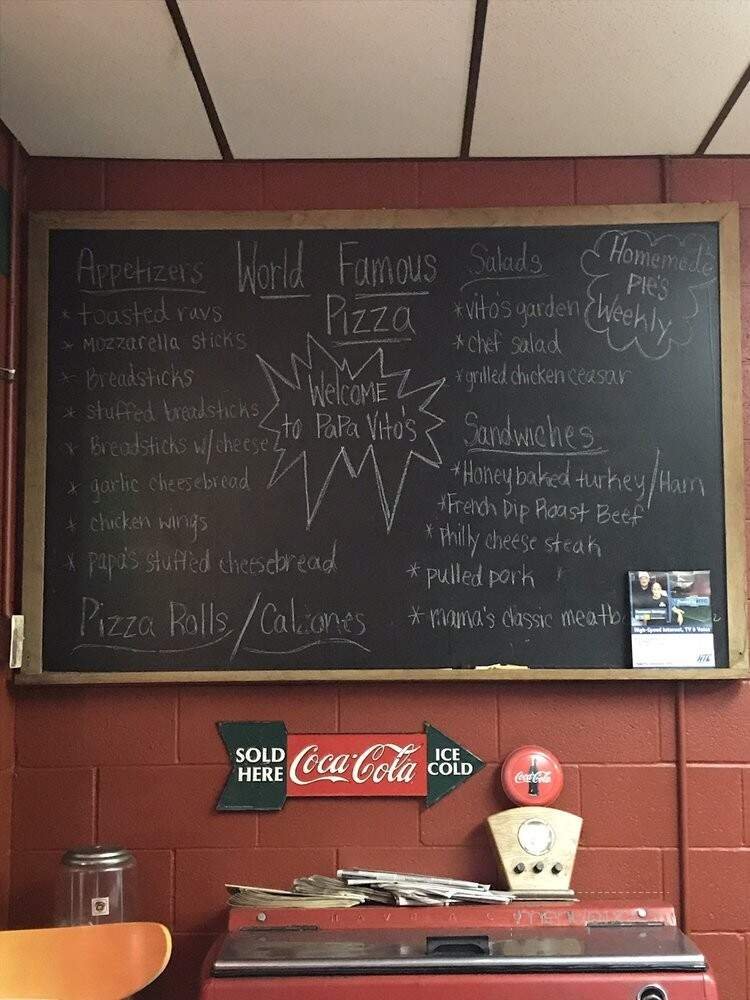 Appetizers
* toasted ravs
* Mozzarella sticks
* Breadsticks
* stuffed breadsticks
* Breadsticks w/cheese
* garlic cheesebread
* chicken wings
* papa's stuffed cheesebread
Pizza Rolls / Calzones
World Famous
Pizza
Welcome
to PaPa Vito's
Salads
* vito's garden
* chef salad
* grilled chicken ceasar
Homemede
Pie's
Weekly
Sandwiches
* Honeybaked turkey/Ham
* French Dip Roast Beef
* Philly cheese steak
* pulled pork
* mama's classic meatb
High-Speed Internet, TV & Voice
SOLD
HERE
Coca-Cola
ICE
COLD
Coca-Cola